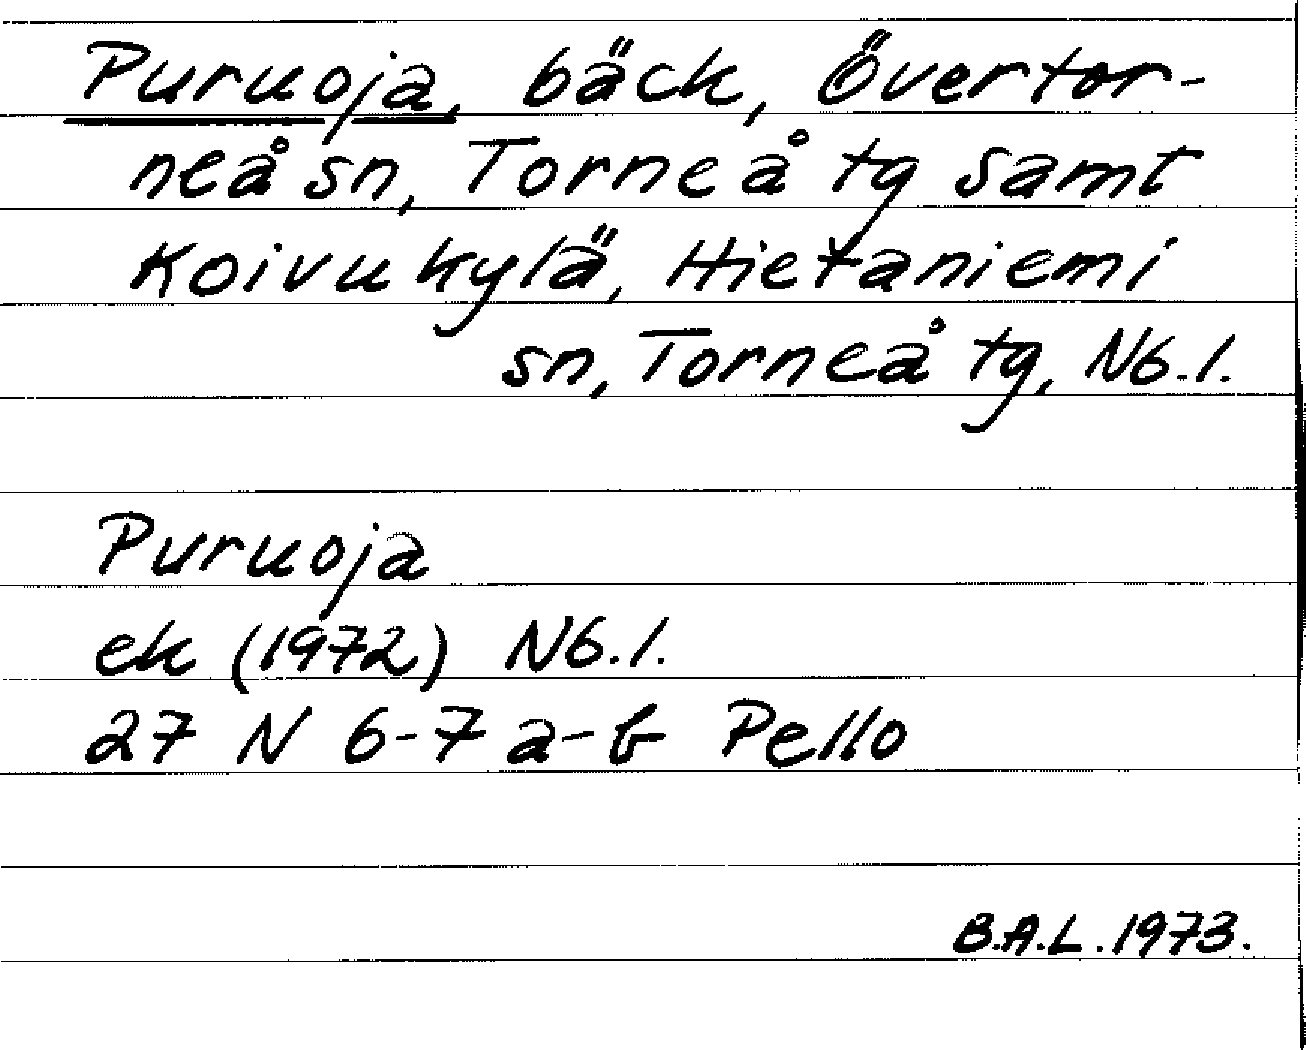 Puruoja, bäck, Övertor-
neå sn, Torneå tg samt
Koivukylä, Hietaniemi
sn, Torneå tg, Nb.l.
Puruoja
ek (1972) Nb.l.
27 N 6-7 a-b Pello
B.A.L. 1973.